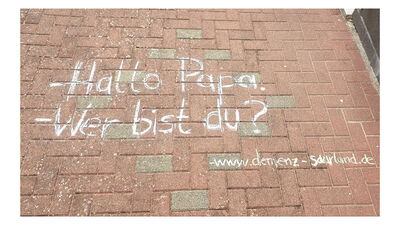 -Hallo Papa.
-Wer bist du?
-www.demenz-saarland.de